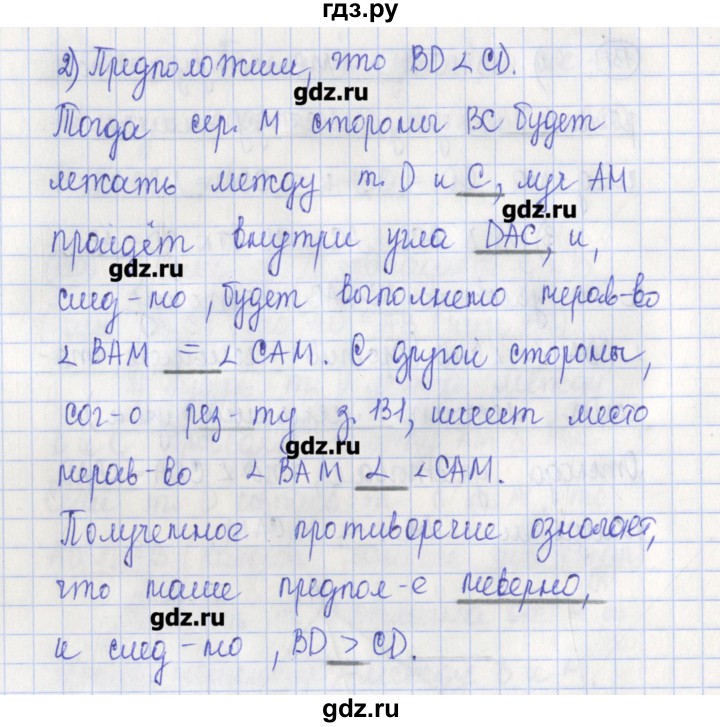 гдз.ру
2) Предположим, что BD < CD.
gdz.ru
Тогда сер. М стороны ВС будет
лежать между т. D и С, луч АМ
gdz.ru
пройдёт внутри угла DAC, и,
gdz.ru
след-но, будет выполнено нерав-во
∠ BAM = ∠ CAM. С другой стороны,
сог-о рез-ту з. 131, имеет место
gdz.ru
нерав-во ∠ BAM < ∠CAM.
Полученное противоречие означает,
что наше предпол-е неверно,
gdz.ru
и след-но, BD > CD.
gdz.ru